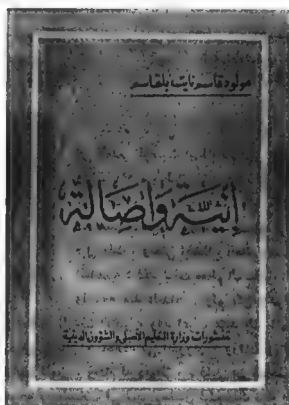 مولود قاسم نايت بلقاسم
إنّيّة وأصالة
منشورات وزارة التعليم الأصلي والشؤون الدينية